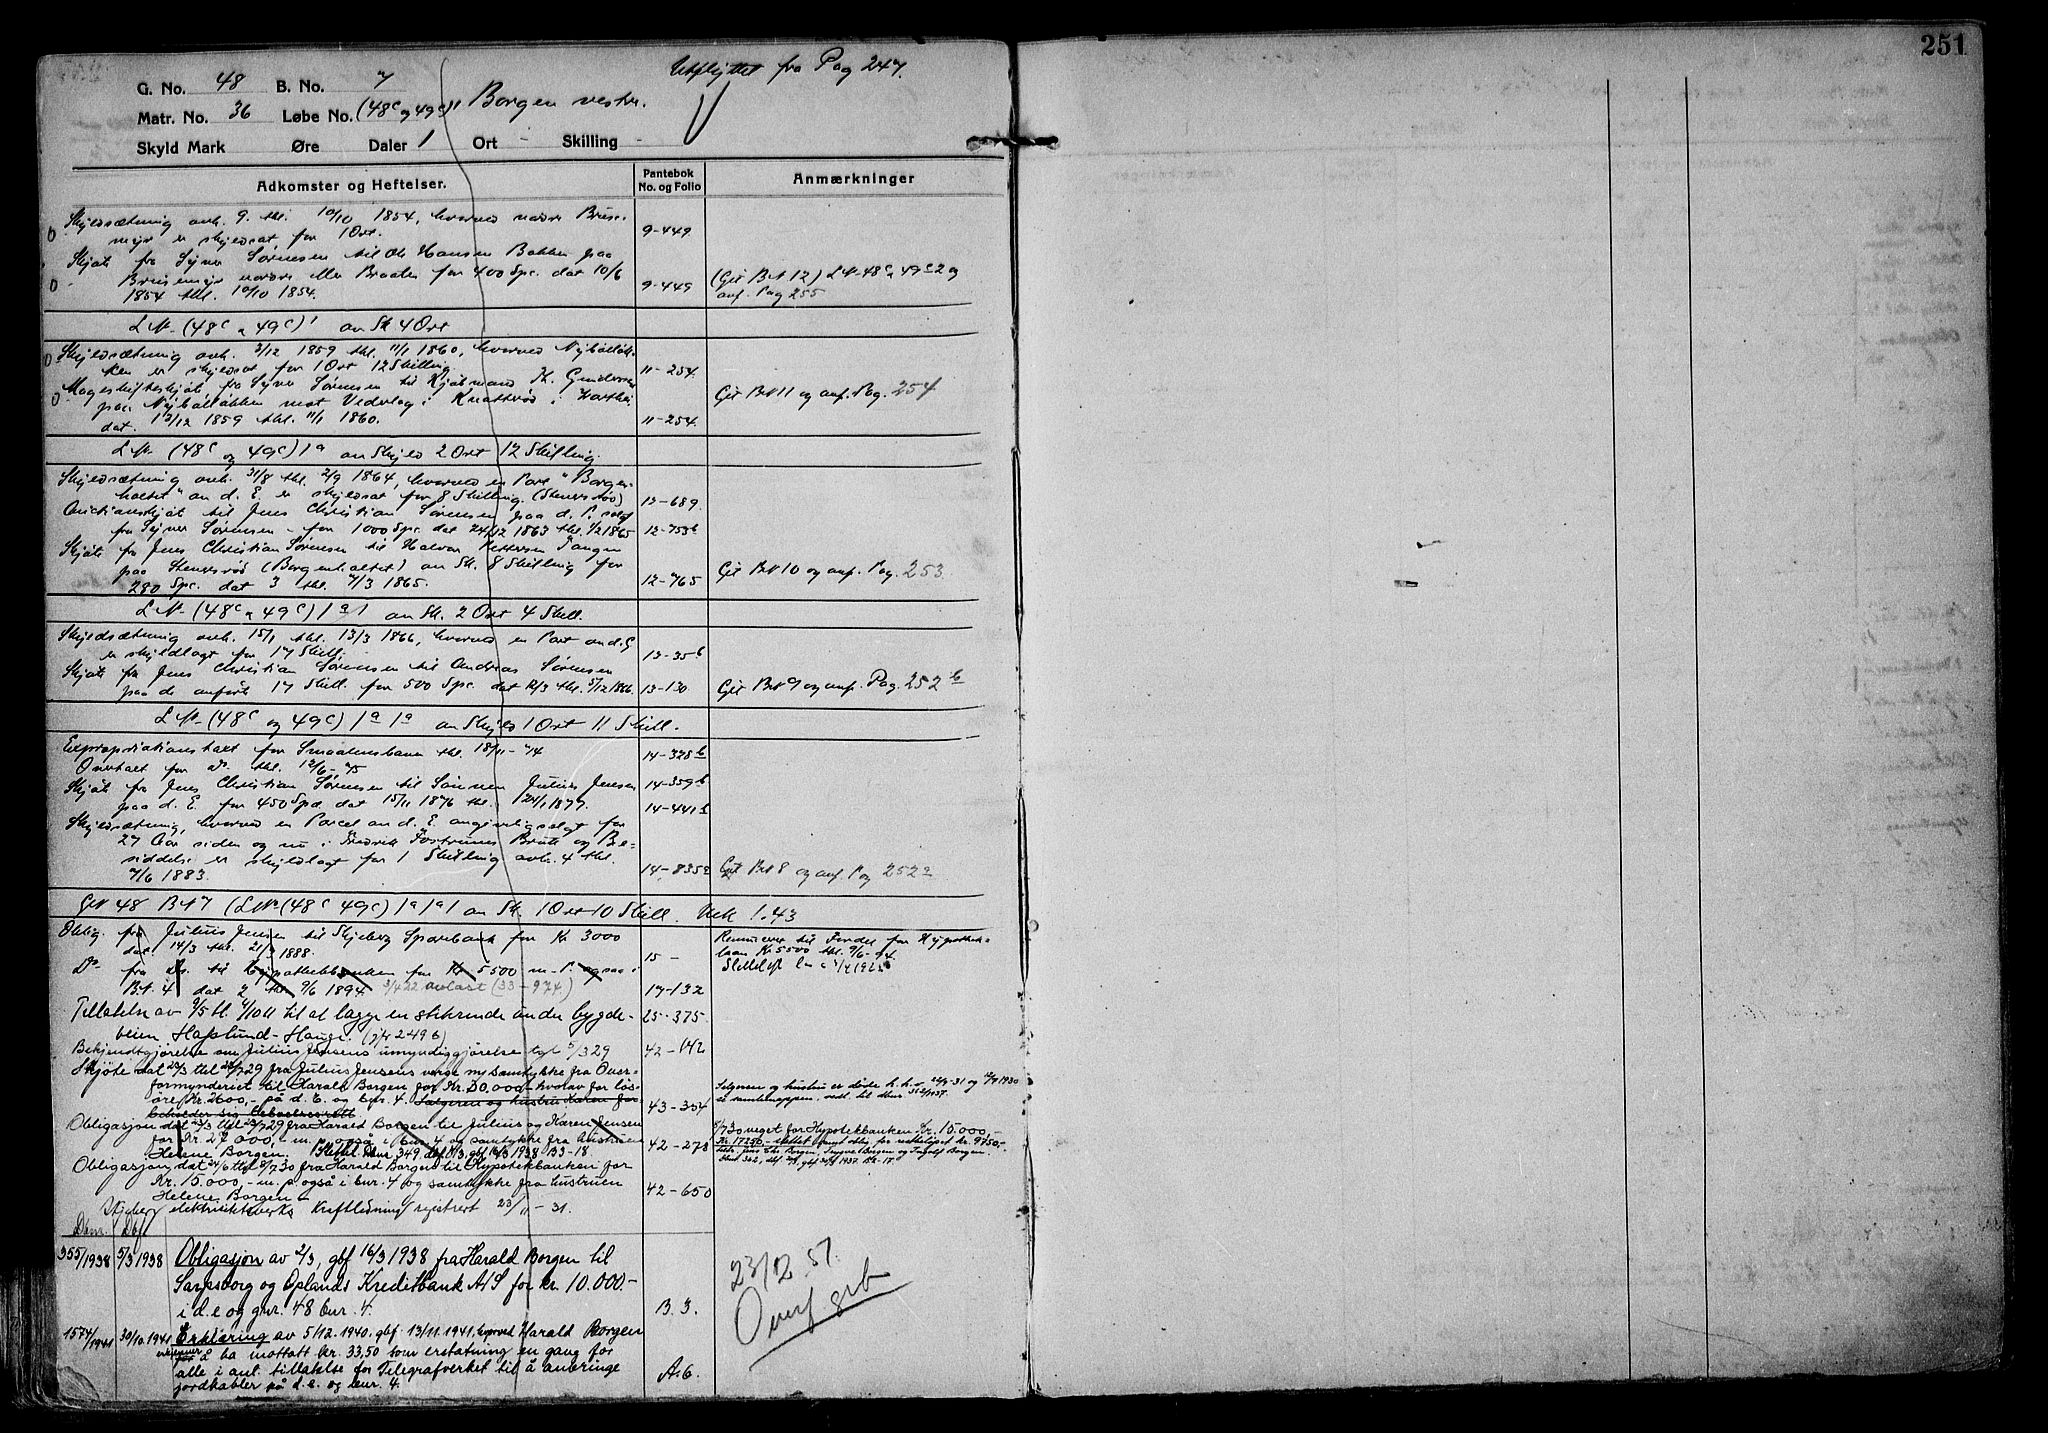 251
Utflyttet fra Pag 247.
G. No. 48 B. No. 7
Matr. No. 36 Løbe No. (48c og 49c)1 Borgen vestre.
Skyld Mark Øre Daler 1 Ort - Skilling -
Adkomster og Heftelser. Pantebok No. og Folio Anmærkninger
0 Skyldsætning avh. 9. thl. 10/10 1854, hvorved nordre Brusemyr er skyldsat for 1 Ort. 9-449
0 Skjøte fra Syver Sørensen til Ole Hansen Bakken paa
Brusemyr nordre eller Braaten for 400 Spc. dat 10/6
1854 thl. 10/10 1854. 9-449 (Gjt BN 12) LN 48c og 49c 2 og anf. Pag 255
LN (48c og 49c)1 av Sk 4 Ort
0 Skyldsætning avh. 3/12 1859 thl. 11/1 1860, hvorved Nybølløkken er skyldsat for 1 Ort 12 Skilling 11-254.
0 Mageskifteskjøte fra Syver Sørensen til Hjelmand H. Gundersen
paa Nybølløkken mot Vederlag i Knatterød i
dat. 12/12 1859 thl. 11/1 1860. 11-254. Gjt BN 11 og anf. Pag. 254
LN (48c og 49c)1a av Skyld 2 Ort 12 Skilling
Skyldsætning avh. 31/8 thl. 2/9 1864, hvorved en Part "Borgenholtet" av d. E. er skyldsat for 8 Skilling. (Stensrød) 12-689.
Auctionskjøte til Jens Christian Sørensen paa d. E. solgt
fra Syver Sørensen - for 1000 Spc. dat 24/12 1863 thl. 1/2 1865 12-753b
Skjøte fra Jens Christian Sørensen til Halvor Pettersen Tangen
paa Stensrød (Borgenholtet) av Sk. 8 Skilling for
280 Spc. dat 3 thl. 7/3 1865. 12-765 Gjt BN 10 og anf. Pag. 253.
LN (48c og 49c)1a1 av Sk. 2 Ort 4 Skill.
Skyldsætning avh. 15/1 thl. 13/3 1866, hvorved en Part av d. E
er skyldlagt for 17 Skill. 13-35b
Skjøte fra Jens Christian Sørensen til Andreas Sørensen
paa de anførte 17 Skill. for 500 Spc. dat 12/3 thl. 5/12 1866. 13-130 Gjt BN 9 og anf. Pag. 252b
LN (48c og 49c)1a1a av Skyld 1 Ort 11 Skill.
Expropriationstaxt for Smaalensbanen thl. 18/11-74 14-328b
Overtaxt for do thl. 12/6-75 14-359b
Skjøte fra Jens Christian Sørensen til Sønnen Julius Jensen
paa d. E. for 450 Spd. dat 15/11 1876 thl. 24/1 1877. 14-441b
Skyldsætning, hvorved en Parcel av d. E. angivelig solgt for
27 Aar siden og nu i Fredrik Fostrumes Bruk og Besiddelse er skyldlagt for 1 Skilling avh. 4 thl.
7/6 1883. 14-835a Gjt BN 8 og anf. Pag 252a
GN 48 BN 7 (LN (48c 49c)1a1a1 av Sk. 1 Ort 10 Skill. Mk 1.43
Oblig. fra Julius Jensen til Skjeberg Sparebank for Kr 3000
dat. 14/3 thl. 21/3 1888. 15 - Renuncerer til Fordel for Hypotheklaan Kr 5500 thl. 9/6-94.
Do fra ds. til Hypothekbanken for Kr 5500 m. P. ogsaa i
B.N. 4 dat 2 thl 9/6 1894. 3/4 22 avlæst (33-974) 17-132
Tillatelse av 9/5 tl. 4/10 11 til at lægge en stikrende under bygdeveien Hafslund-Hauge. (jfr 249b) 25-375
Bekjendtgjørelse om Julius Jensens umyndiggjørelse tgl 5/3 29 42-142
Skjøte dat 22/3 thl 24/7 29 fra Julius Jensens verge m/samtykke fra Overformynderiet til Harald Borgen for Kr. 30.000- hvorav for løsøre Kr. 2600,- på d. E. og bnr. 4. Sælgeren og hustru Karen forbeholder sig beboelsesrett 43-354
Obligasjon dat 22/3 thl 24/7 29 fra Harald Borgen til Julius og Karen Jensen
for Kr. 27 000,- m. p. også i bnr. 4 og samtykke fra hustruen
Helene Borgen. Slettet Dnr 349, dbf. 5/3, gbf 16/3 1938 B3-18. 42-278
Obligasjon dat 24/6 thl 8/7 30 fra Harald Borgen til Hypotekbanken for
Kr. 15.000,- m. p. også i bnr. 4 og samtykke fra hustruen
Helene Borgen. 42-650
Skjeberg elektrisitetsverks Kraftledning registrert 23/11-31.
Dbnr. Dbf
355/1938 5/3 1938 Obligasjon av 2/3, gbf 16/3 1938 fra Harald Borgen til
Sarpsborg og Oplands Kreditbank A/S for kr. 10.000.-
i d.e og gnr. 48 bnr. 4. B. 3.
1574/1941 30/10.1941 Erklæring av 5/12.1940. gbf. 13/11.1941, hvorved Harald Borgen
erkjenner å ha mottatt kr. 33,50 som erstatning en gang for
alle i anl. tillatelse for Telegrafverket til å anbringe
jordkabler på d.e. og bnr. 4. A.6.
23/12.57.
Overf grb